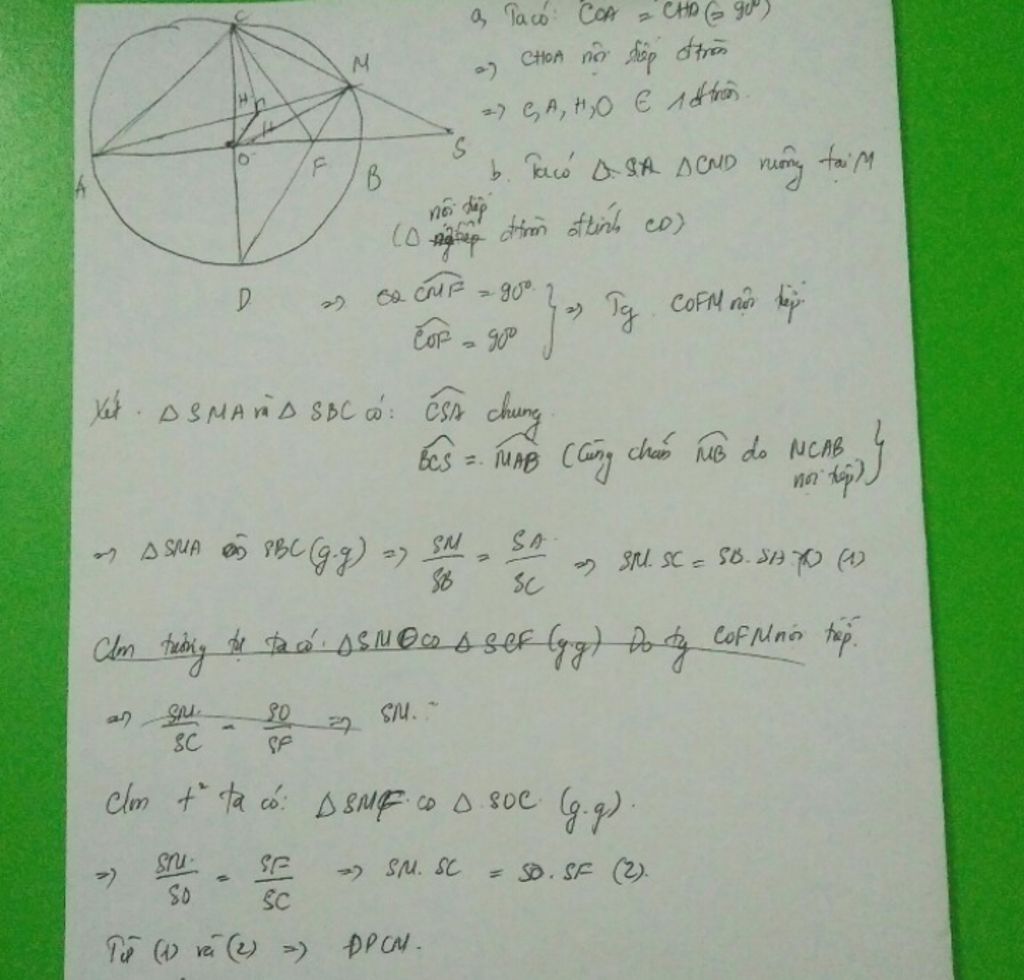 a, Ta có: COA = CHA (= 90°)
=> CHOA nội tiếp đtròn
=> C, A, H, O ∈ 1 đtròn.
C
M
H
H
O
F
S
A
B
D
b. Ta có Δ SA ΔCMD vuông tại M
nội tiếp
(Δ đtròn đkính CD)
=> CMF = 90°.
COF = 90°
} => Tg COFM nội tiếp
Xét ΔSMA và ΔSBC có: CSA chung
BCS = MAB (Cùng chắn MB do MCAB
nội tiếp) }
=> ΔSMA ∽ SBC (g.g) => SM/SB = SA/SC => SM.SC = SB.SA (1)
Cm tương tự ta có: ΔSMO ∽ ΔSCF (g.g) Do tg COFM nội tiếp.
=> SM/SC = SO/SF => SM.
Cm t² ta có: ΔSMF ∽ ΔSOC (g.g).
=> SM/SO = SF/SC => SM.SC = SO.SF (2).
Từ (1) và (2) => ĐPCM.